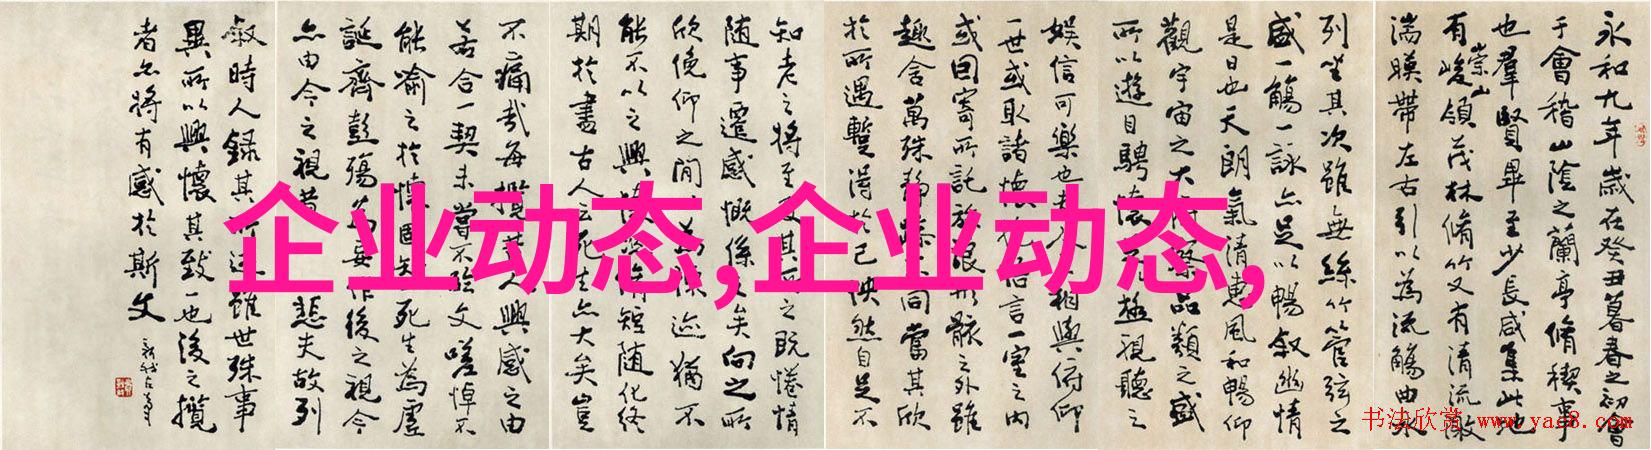 永和九年歲在癸丑暮春之初會
于會稽山陰之蘭亭脩稧事
也羣賢畢至少長咸集此地
有崇山峻領茂林脩竹又有清流激
湍暎帶左右引以為流觴曲水
列坐其次雖無絲竹管弦之
盛一觴一詠亦足以暢敘幽情
是日也天朗氣清惠風和暢仰
觀宇宙之大 品類之盛
所以遊目騁懷 極視聽之
娛信可樂也 相與俯仰
一世或取諸懷 言一室之內
或因寄所託放浪形骸之外雖
趣舍萬殊 同當其欣
於所遇暫得於己怏然自足不
知老之將至 其 之既惓情
隨事遷感慨係 矣向之所
欣俛仰之間 迹猶不
能不以之興懷 脩短隨化終
期於盡古人云死生亦大矣豈
不痛哉每攬 人興感之由
若合一契未嘗不臨文嗟悼不
能喻之於懷固知 死生為虛
誕齊彭殤為妄作後之視今
亦由今之視昔 悲夫故列
敘時人錄其所述雖世殊事
異所以興懷其致一也後之攬
者亦將有感於斯文
企业动态,企业动态,
书法欣赏 www.yac8.com